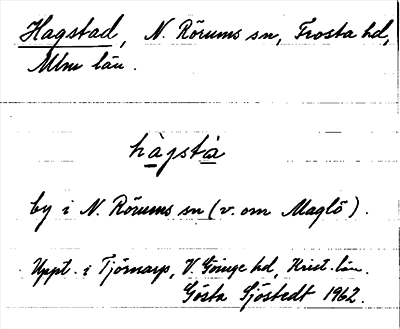 Hagstad, N. Rörums sn, Frosta hd,
Mlm län.
hàgstà
by i N. Rörums sn (v. om Maglö).
Uppt. i Tjörnarp, V. Göinge hd, Krist. län.
Gösta Sjöstedt 1962.